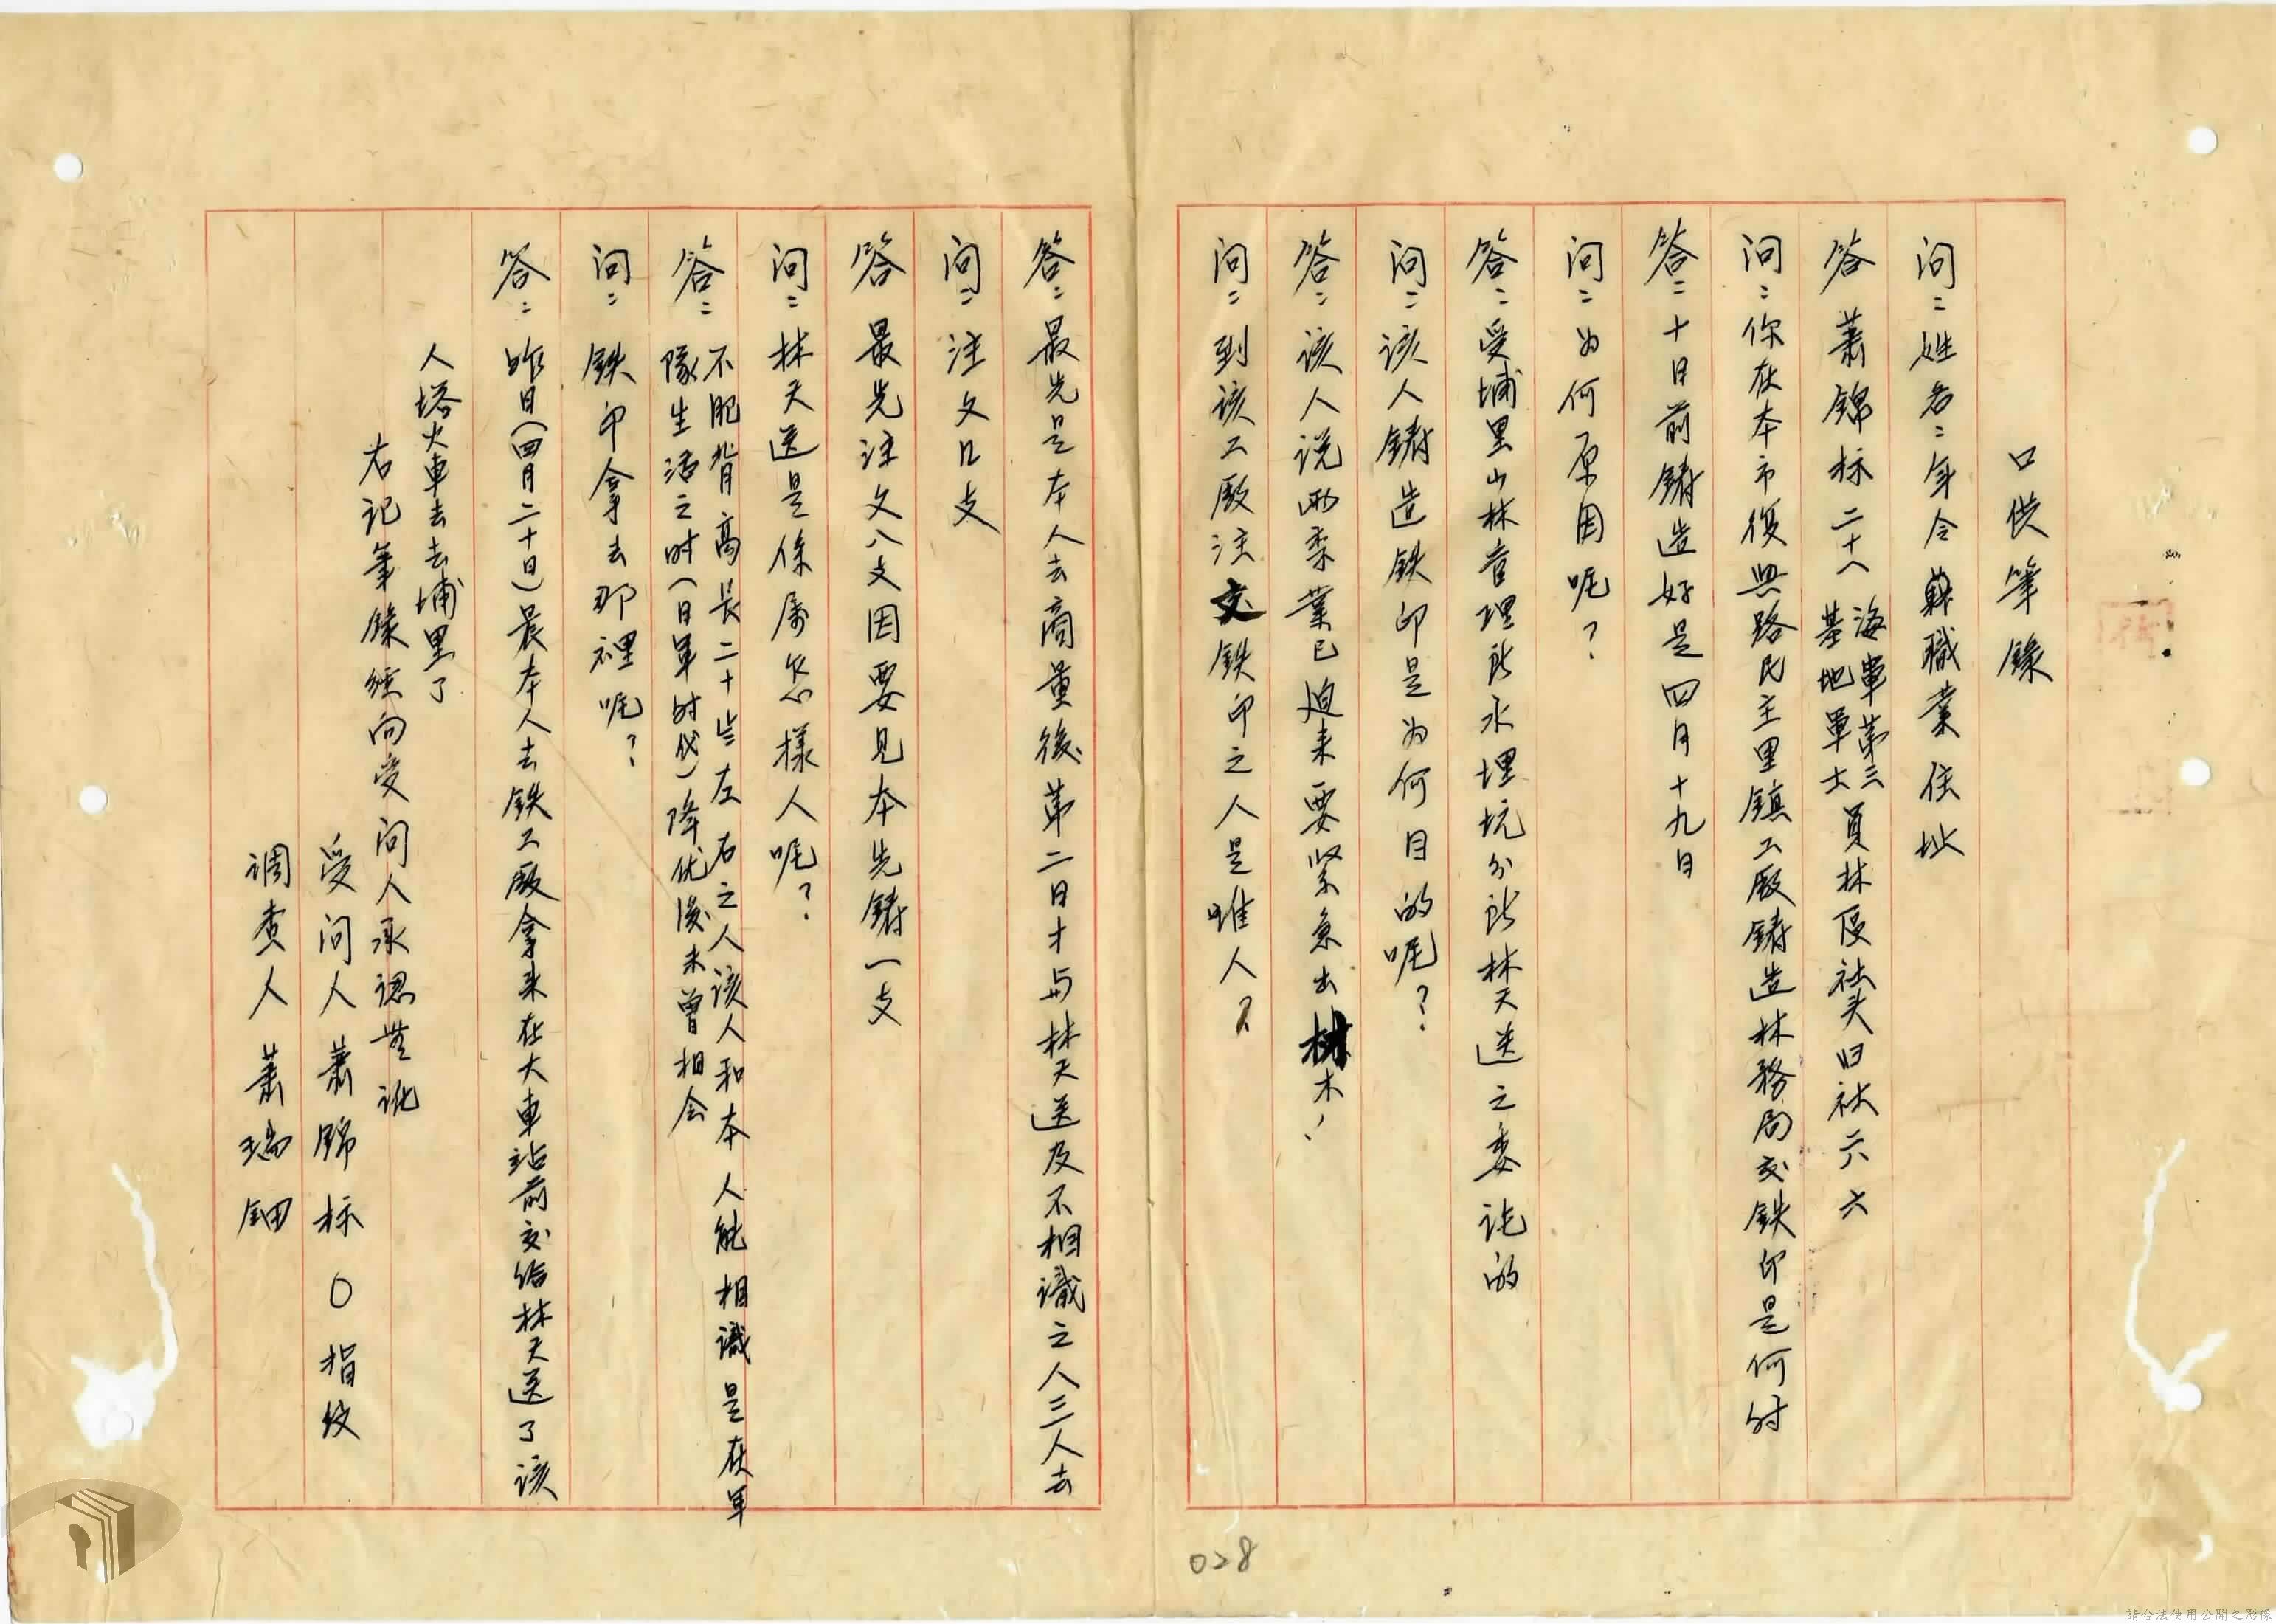 口供筆錄
问：姓名：年令職業住址
答 蕭錦标 二十八 海軍第三基地軍士 員林区社头旧社六六
问：你在本市復興路民主里鎮工廠鑄造林務局交鉄印是何时
答：十日前鑄造好是四月十九日
问：为何原因呢？
答：受埔里山林管理所水埋坑分所林天送之委託的
问：该人鑄造鉄印是为何目的呢？
答：该人说两乘業已迫来要緊急出林木！
问：到该工廠注文鉄印之人是唯人？
答：最先是本人去商量後第二日才与林天送及不相識之人三人去
问：注文几支
答 最先注文八支因要见本先鑄一支
问：林天送是係属怎樣人呢？
答：不肥背高長二十些左右之人该人和本人能相識是在军
隊生活之时(日軍时代)降伏後未曾相会
问：鉄印拿去那裡呢？
答：昨日(四月二十日)晨本人去鉄工廠拿来在大車站前交给林天送了该
人塔火車去去埔里了
右记筆錄経向受问人承認無訛
受问人蕭錦标 〇 指纹
调查人蕭瑞鈿
028
請合法使用公開之影像